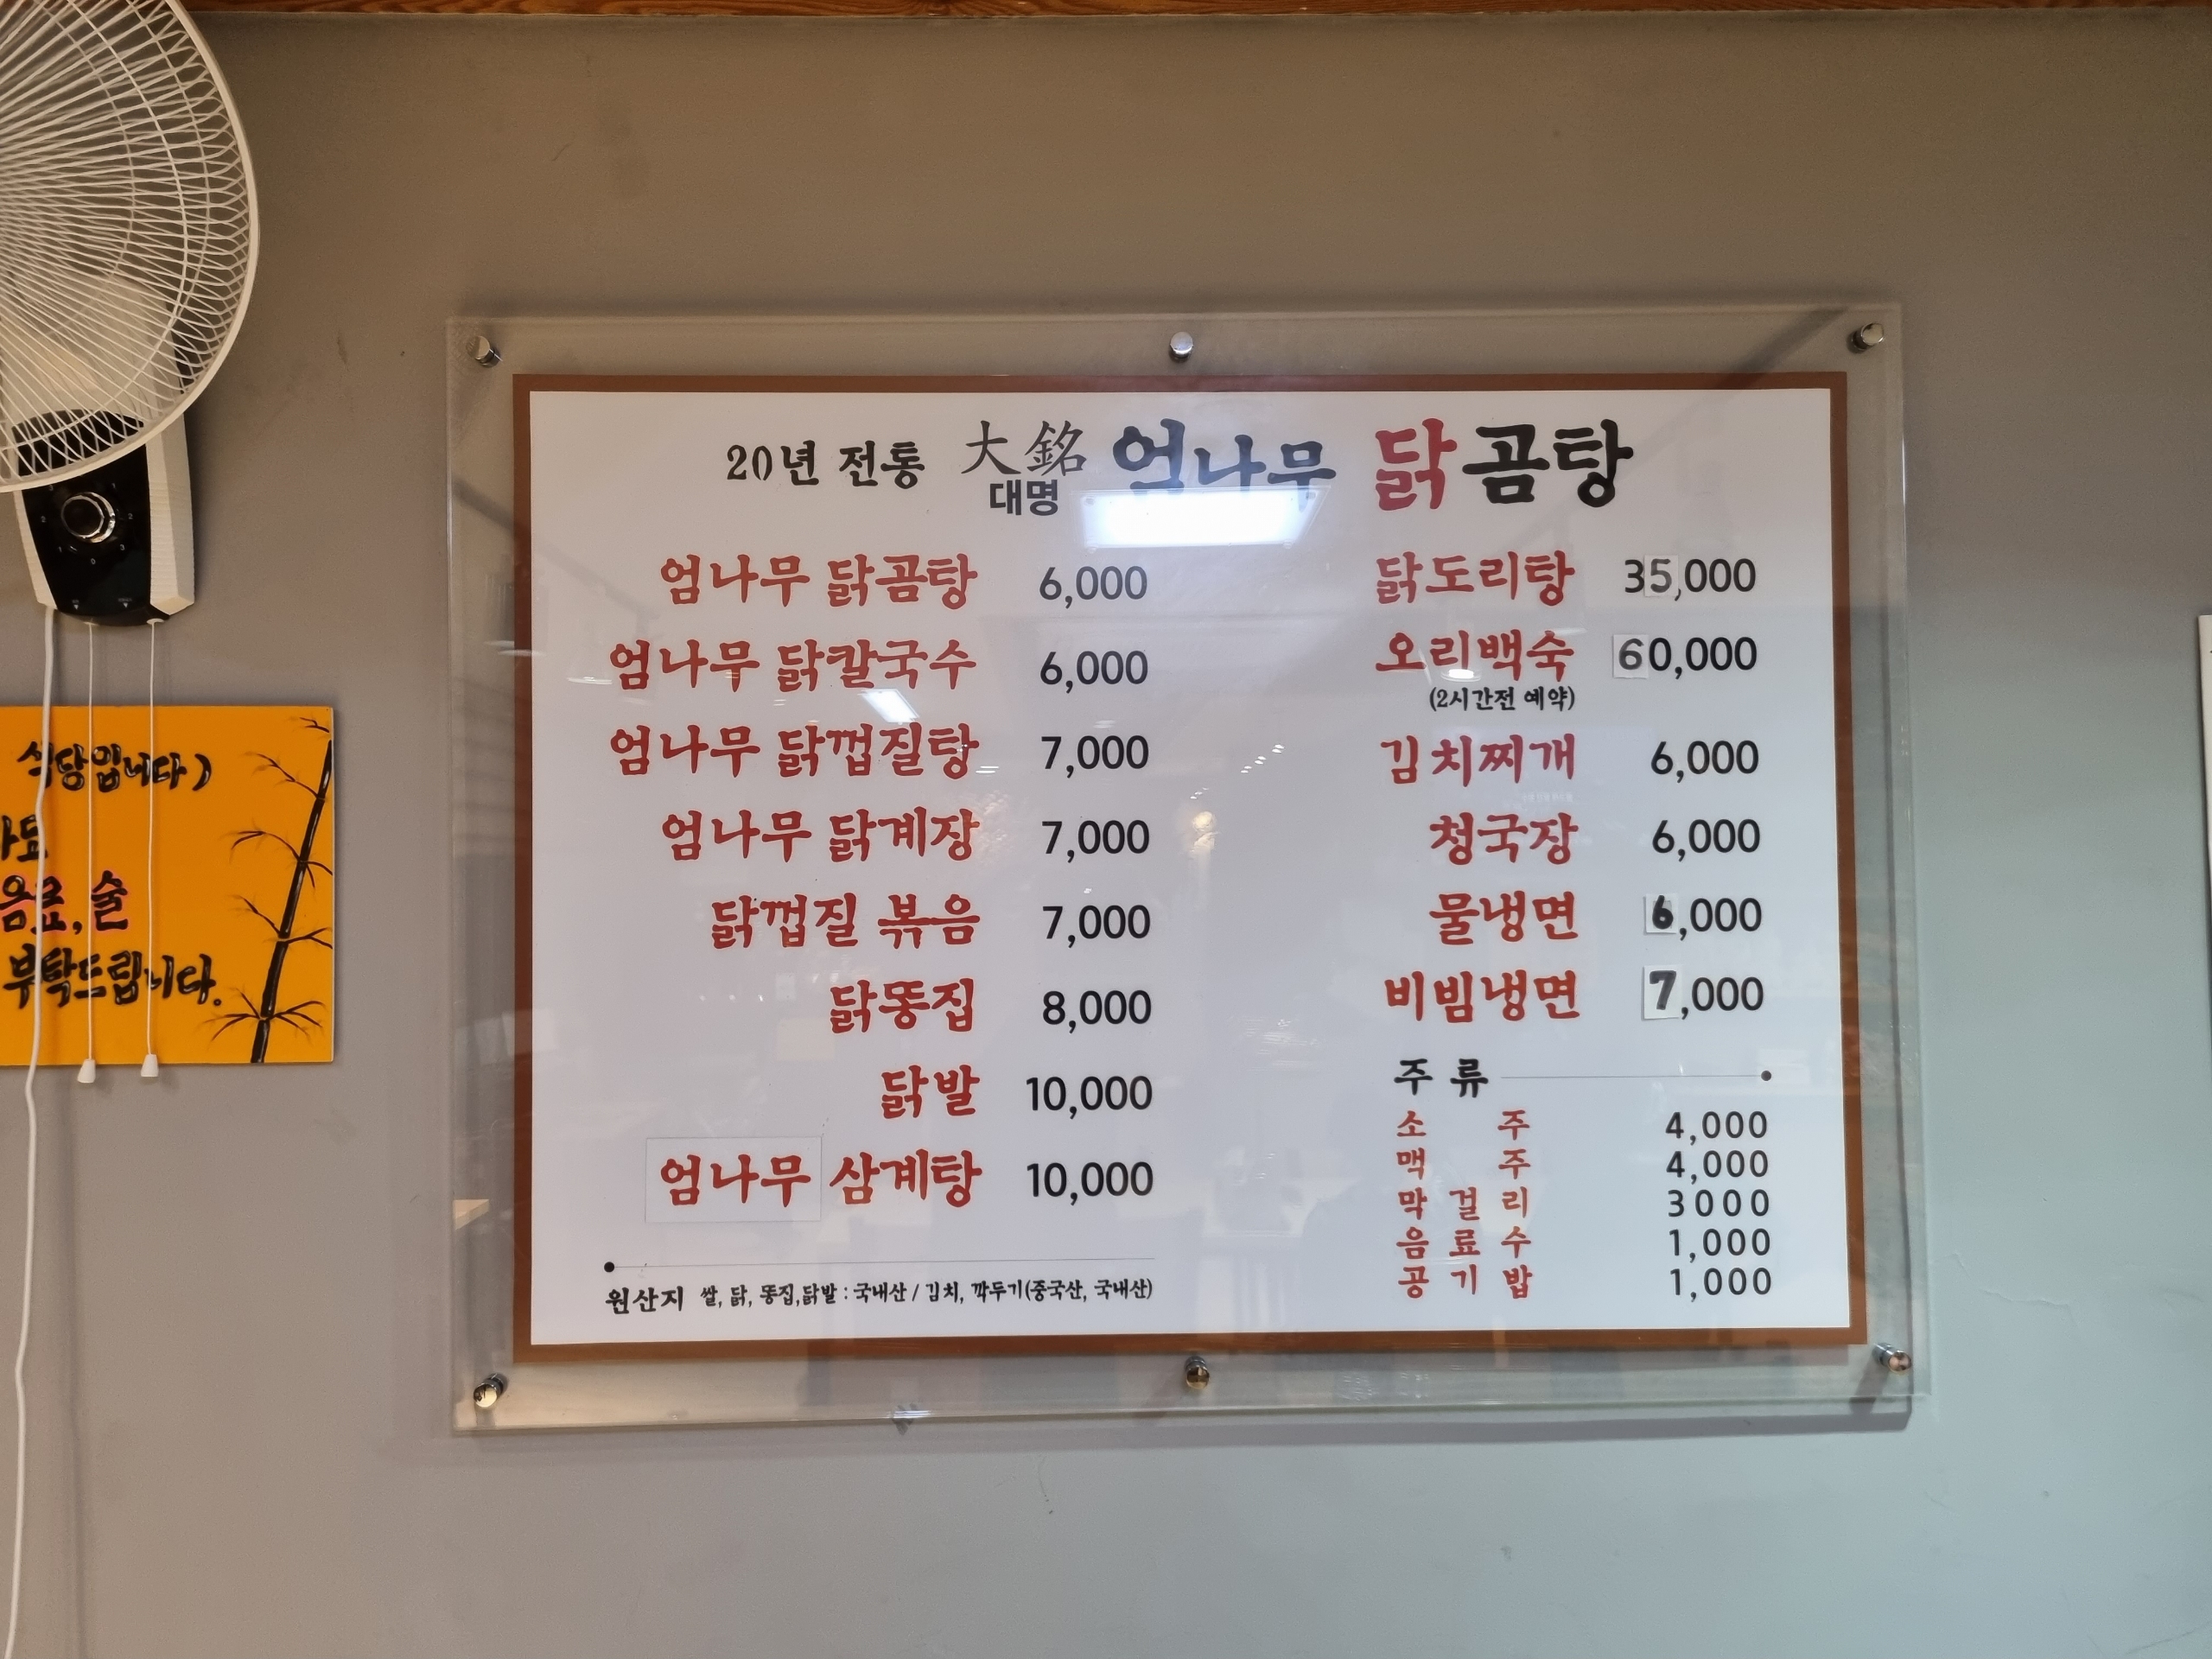 20년 전통 大銘 엄나무 닭곰탕
대명
엄나무 닭곰탕 6,000
엄나무 닭칼국수 6,000
엄나무 닭껍질탕 7,000
엄나무 닭계장 7,000
닭껍질 볶음 7,000
닭똥집 8,000
닭발 10,000
엄나무 삼계탕 10,000
원산지 쌀, 닭, 똥집,닭발 : 국내산 / 김치, 깍두기(중국산, 국내산)
닭도리탕 35,000
오리백숙 60,000
(2시간전 예약)
김치찌개 6,000
청국장 6,000
물냉면 6,000
비빔냉면 7,000
주류
소주 4,000
맥주 4,000
막걸리 3000
음료수 1,000
공기밥 1,000
식당입니다)
음료,술
부탁드립니다.